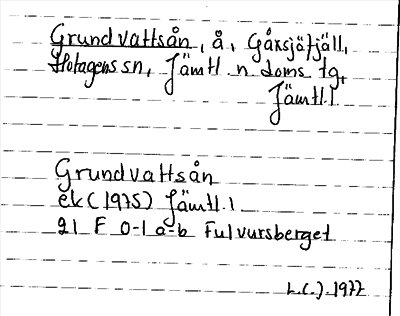 Grundvattsån, å, Gåxsjäfjäll,
Hotagens sn, Jämtl n doms tg,
Jämtl. l
Grundvattsån
ek (1975) Jämtl. l
21 F 0-1 a-b Fulvursberget
L.C.J. 1977